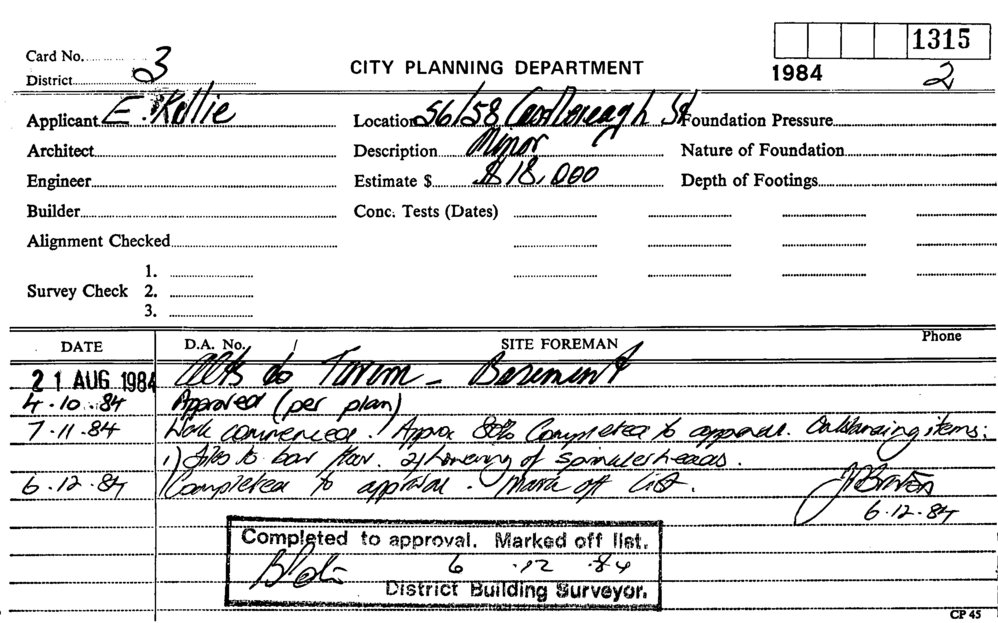 1315
Card No. 3
CITY PLANNING DEPARTMENT
1984 2
District
Applicant E. Kellie Location 56/58 Castlereagh St Foundation Pressure
Architect Description Minor Nature of Foundation
Engineer Estimate $ $18,000 Depth of Footings
Builder Conc. Tests (Dates)
Alignment Checked
1.
Survey Check 2.
3.
DATE D.A. No. SITE FOREMAN Phone
21 AUG 1984 Alts to Tavern - Basement
4.10.84 Approved (per plan)
7.11.84 Work commenced. Approx 80% Completed to approval. Outstanding items:
1) tiles to bar floor. 2) lowering of sprinkler heads.
6.12.84 Completed to approval. Mark off list.
6.12.84
Completed to approval. Marked off list.
6 .12 .84
District Building Surveyor.
CP 45